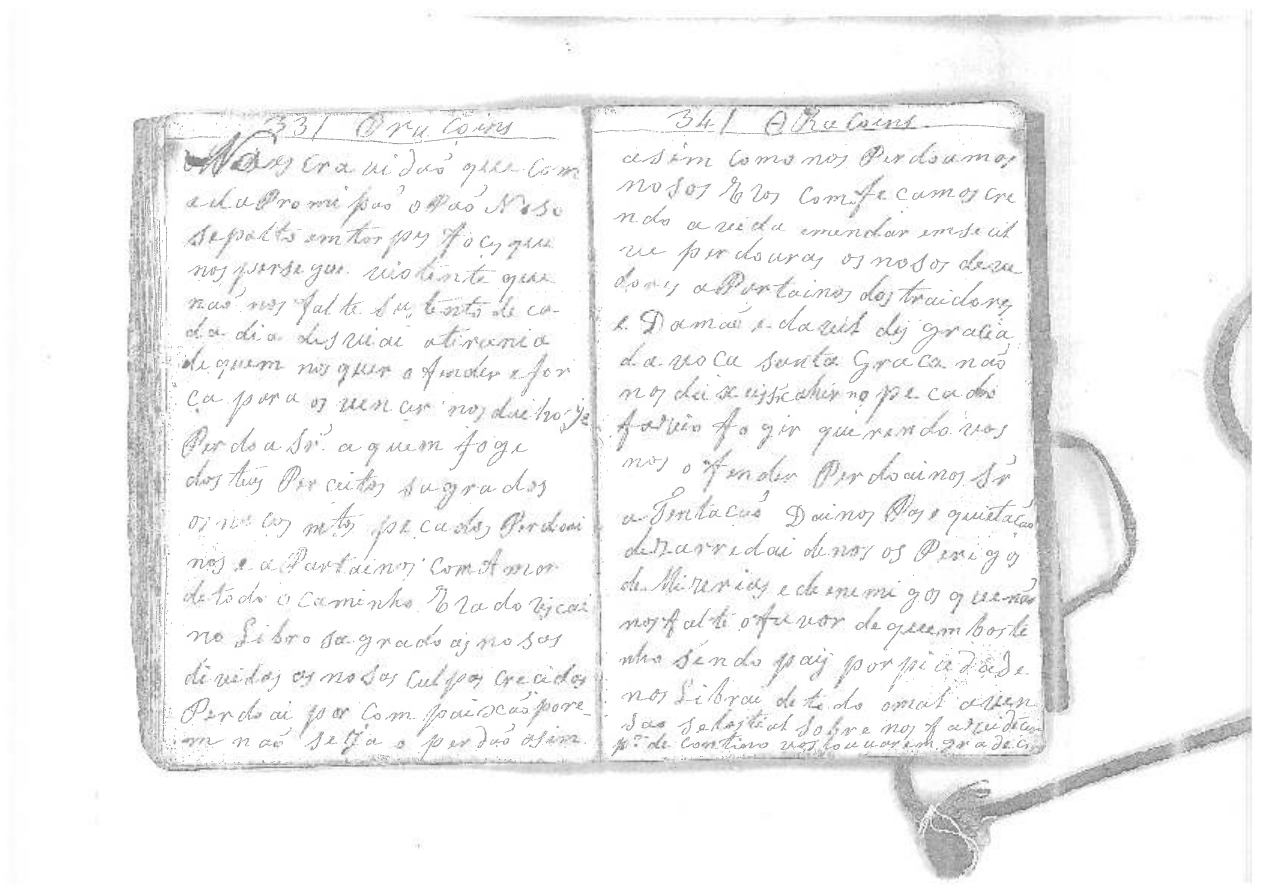 331 Oracoins
Naes cravidaõ que com
ada Promipaõ o Paõ Noso
sepatto emtorpes foces que
nos persegue violente que
naõ nos falte sustento de ca-
da dia desviai atirania
de quem nos quer ofender efor
ça para os vencer nos dai hoje
Perdoa Sr. a quem foge
dos teus Perceitos sagrados
os nocos mtos pecados Perdoai
nos e a Partainos com Amor
de todo o Caminho Erado
no Libro sagrado as nosas
dividas os nosas culpas crecidas
Perdoai por Com paixaõ pore-
m naõ seja o perdaõ asim
341 ORacoins
asim como nos Perdoamos
nosos Eros Comfecamos cre
ndo avida emendar
ve perdouras os nosos deve
dores a Partainos dos traidores
e Damaõ e da vil
da voca santa Graca naõ
nos deixeis cahir no pecado
fogir querendo vos
nos ofender Perdoainos Sr
a Tentacaõ Dainos Pas e quietacaõ
dezarredai denos os Perigos
de Mizerias e de enemigos que naõ
nos falte ofavor de quem boste
nho sendo pay por piadade
nos Librai de todo omal aven
sao selestial sobre nos
pa. de contino vos louvarem